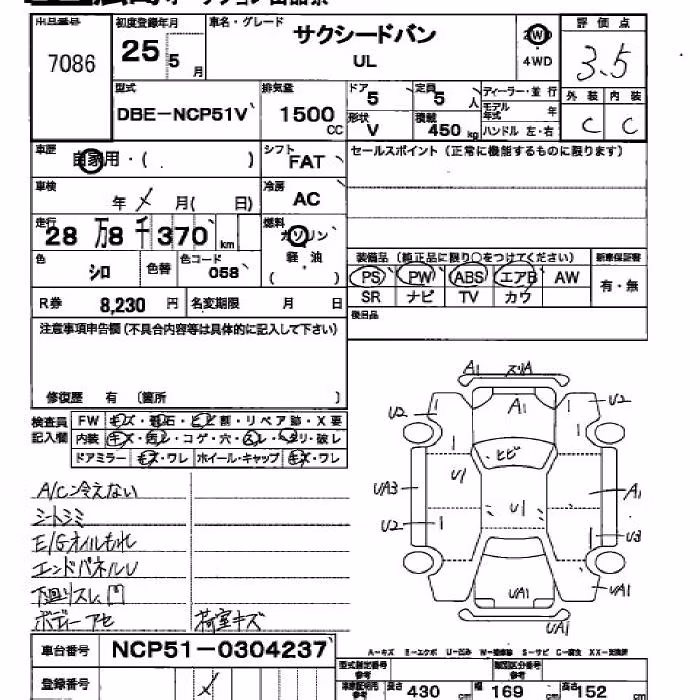 出品番号 初度登録年月 車名・グレード 評価点
7086 25 5 月 サクシードバン UL 2W 4WD 3.5
型式 排気量 ドア 定員 ディーラー・並行 外装 内装
DBE-NCP51V 1500 CC 5 5 人 モデル年式 年 C C
形状 V 積載 450 kg ハンドル 左・右
車歴 自家用・( ) シフト FAT セールスポイント(正常に機能するものに限ります)
車検 年 月( 日) 冷房 AC
走行 28万8千370 km 燃料 ガソリン
軽・油
( )
色 シロ 色替 色コード 058
装備品(純正品に限り○をつけてください) 新車保証書
PS PW ABS エアB AW 有・無
SR ナビ TV カワ
R券 8,230 円 名変期限 月 日 後日品
注意事項申告欄(不具合内容等は具体的に記入して下さい)
修復歴 有 〔箇所 〕
検査員記入欄 FW キズ・飛石・ヒビ割・リペア跡・X要
内装 キズ・コゲ・穴・スレ・ヘタリ・破レ
ドアミラー キズ・ワレ ホイール・キャップ キズ・ワレ
A1 スリA
A1
U2 U2
ヒビ
U1
UA3 U1 A1
U2 U3
UA1 UA1
UA1
A/C冷えない
シートシミ
E/Gオイルもれ
エンドパネルU
下廻りスレ凹
ボディーアセ 荷室キズ
車台番号 NCP51-0304237
A-キズ E-エクボ U-凹み W-補修跡 S-サビ C-腐食 XX-交換済
登録番号
型式指定番号 参考 類別区分番号 参考
車庫証明用 参考 長さ 430 cm 幅 169 cm 高さ 152 cm